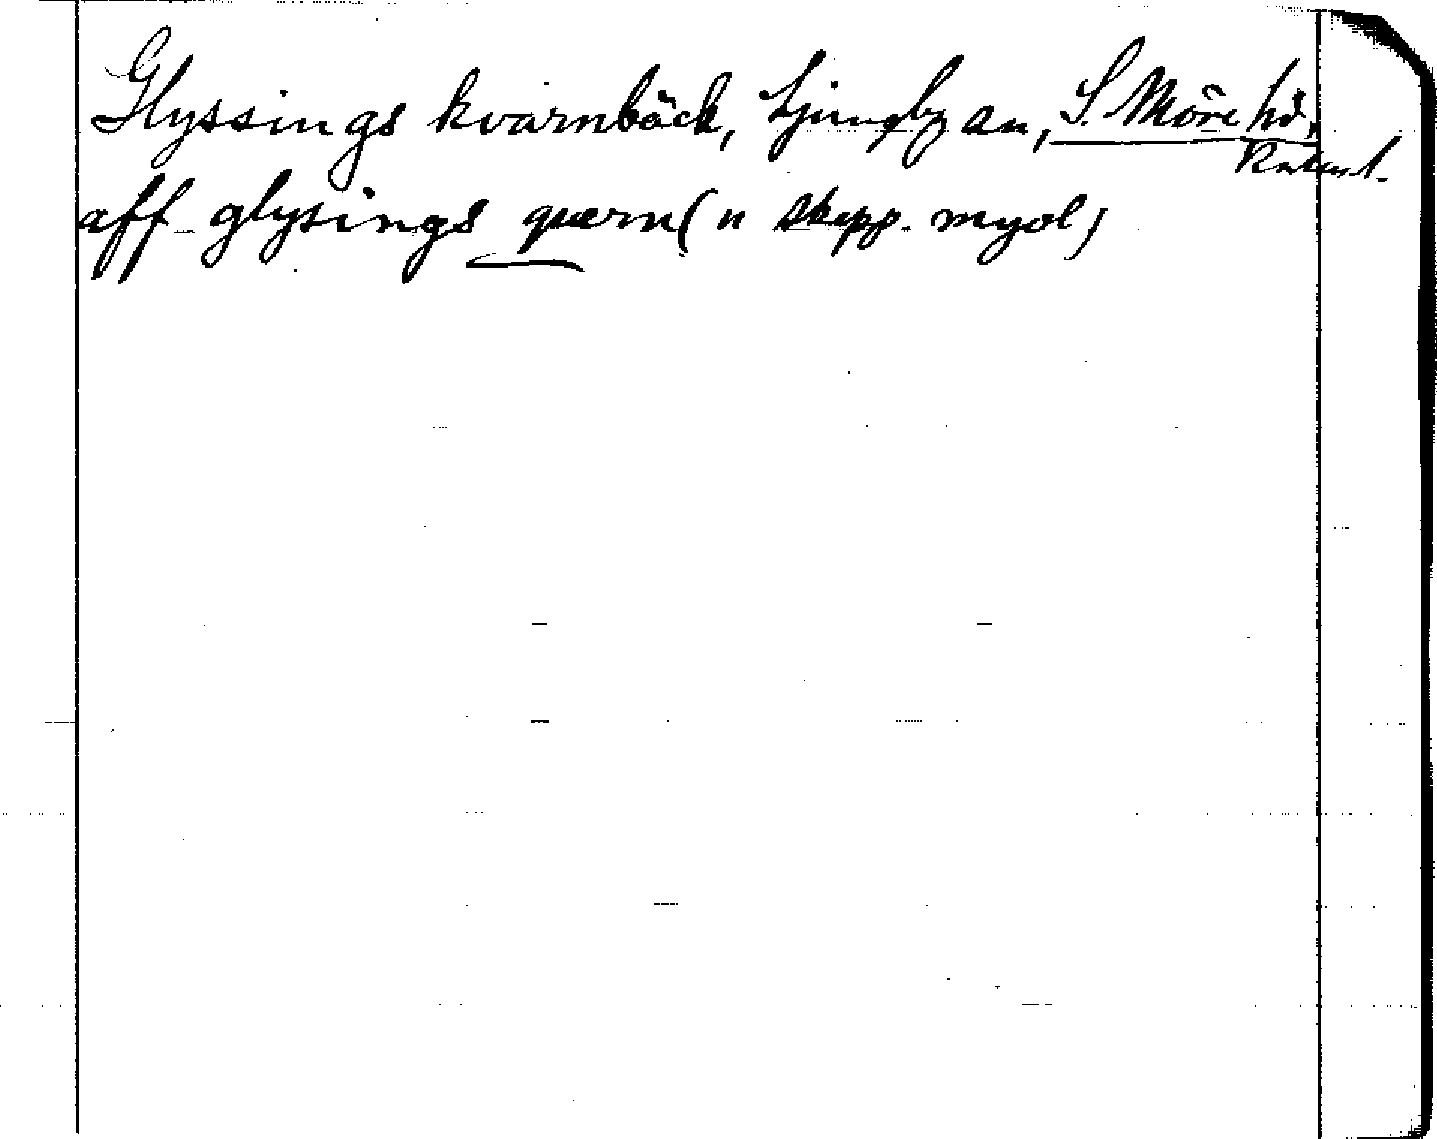 Glyssings kvarnbäck, Ljungby sn, S. Möre hd,
aff glysings quærn (11 skepp. myol)